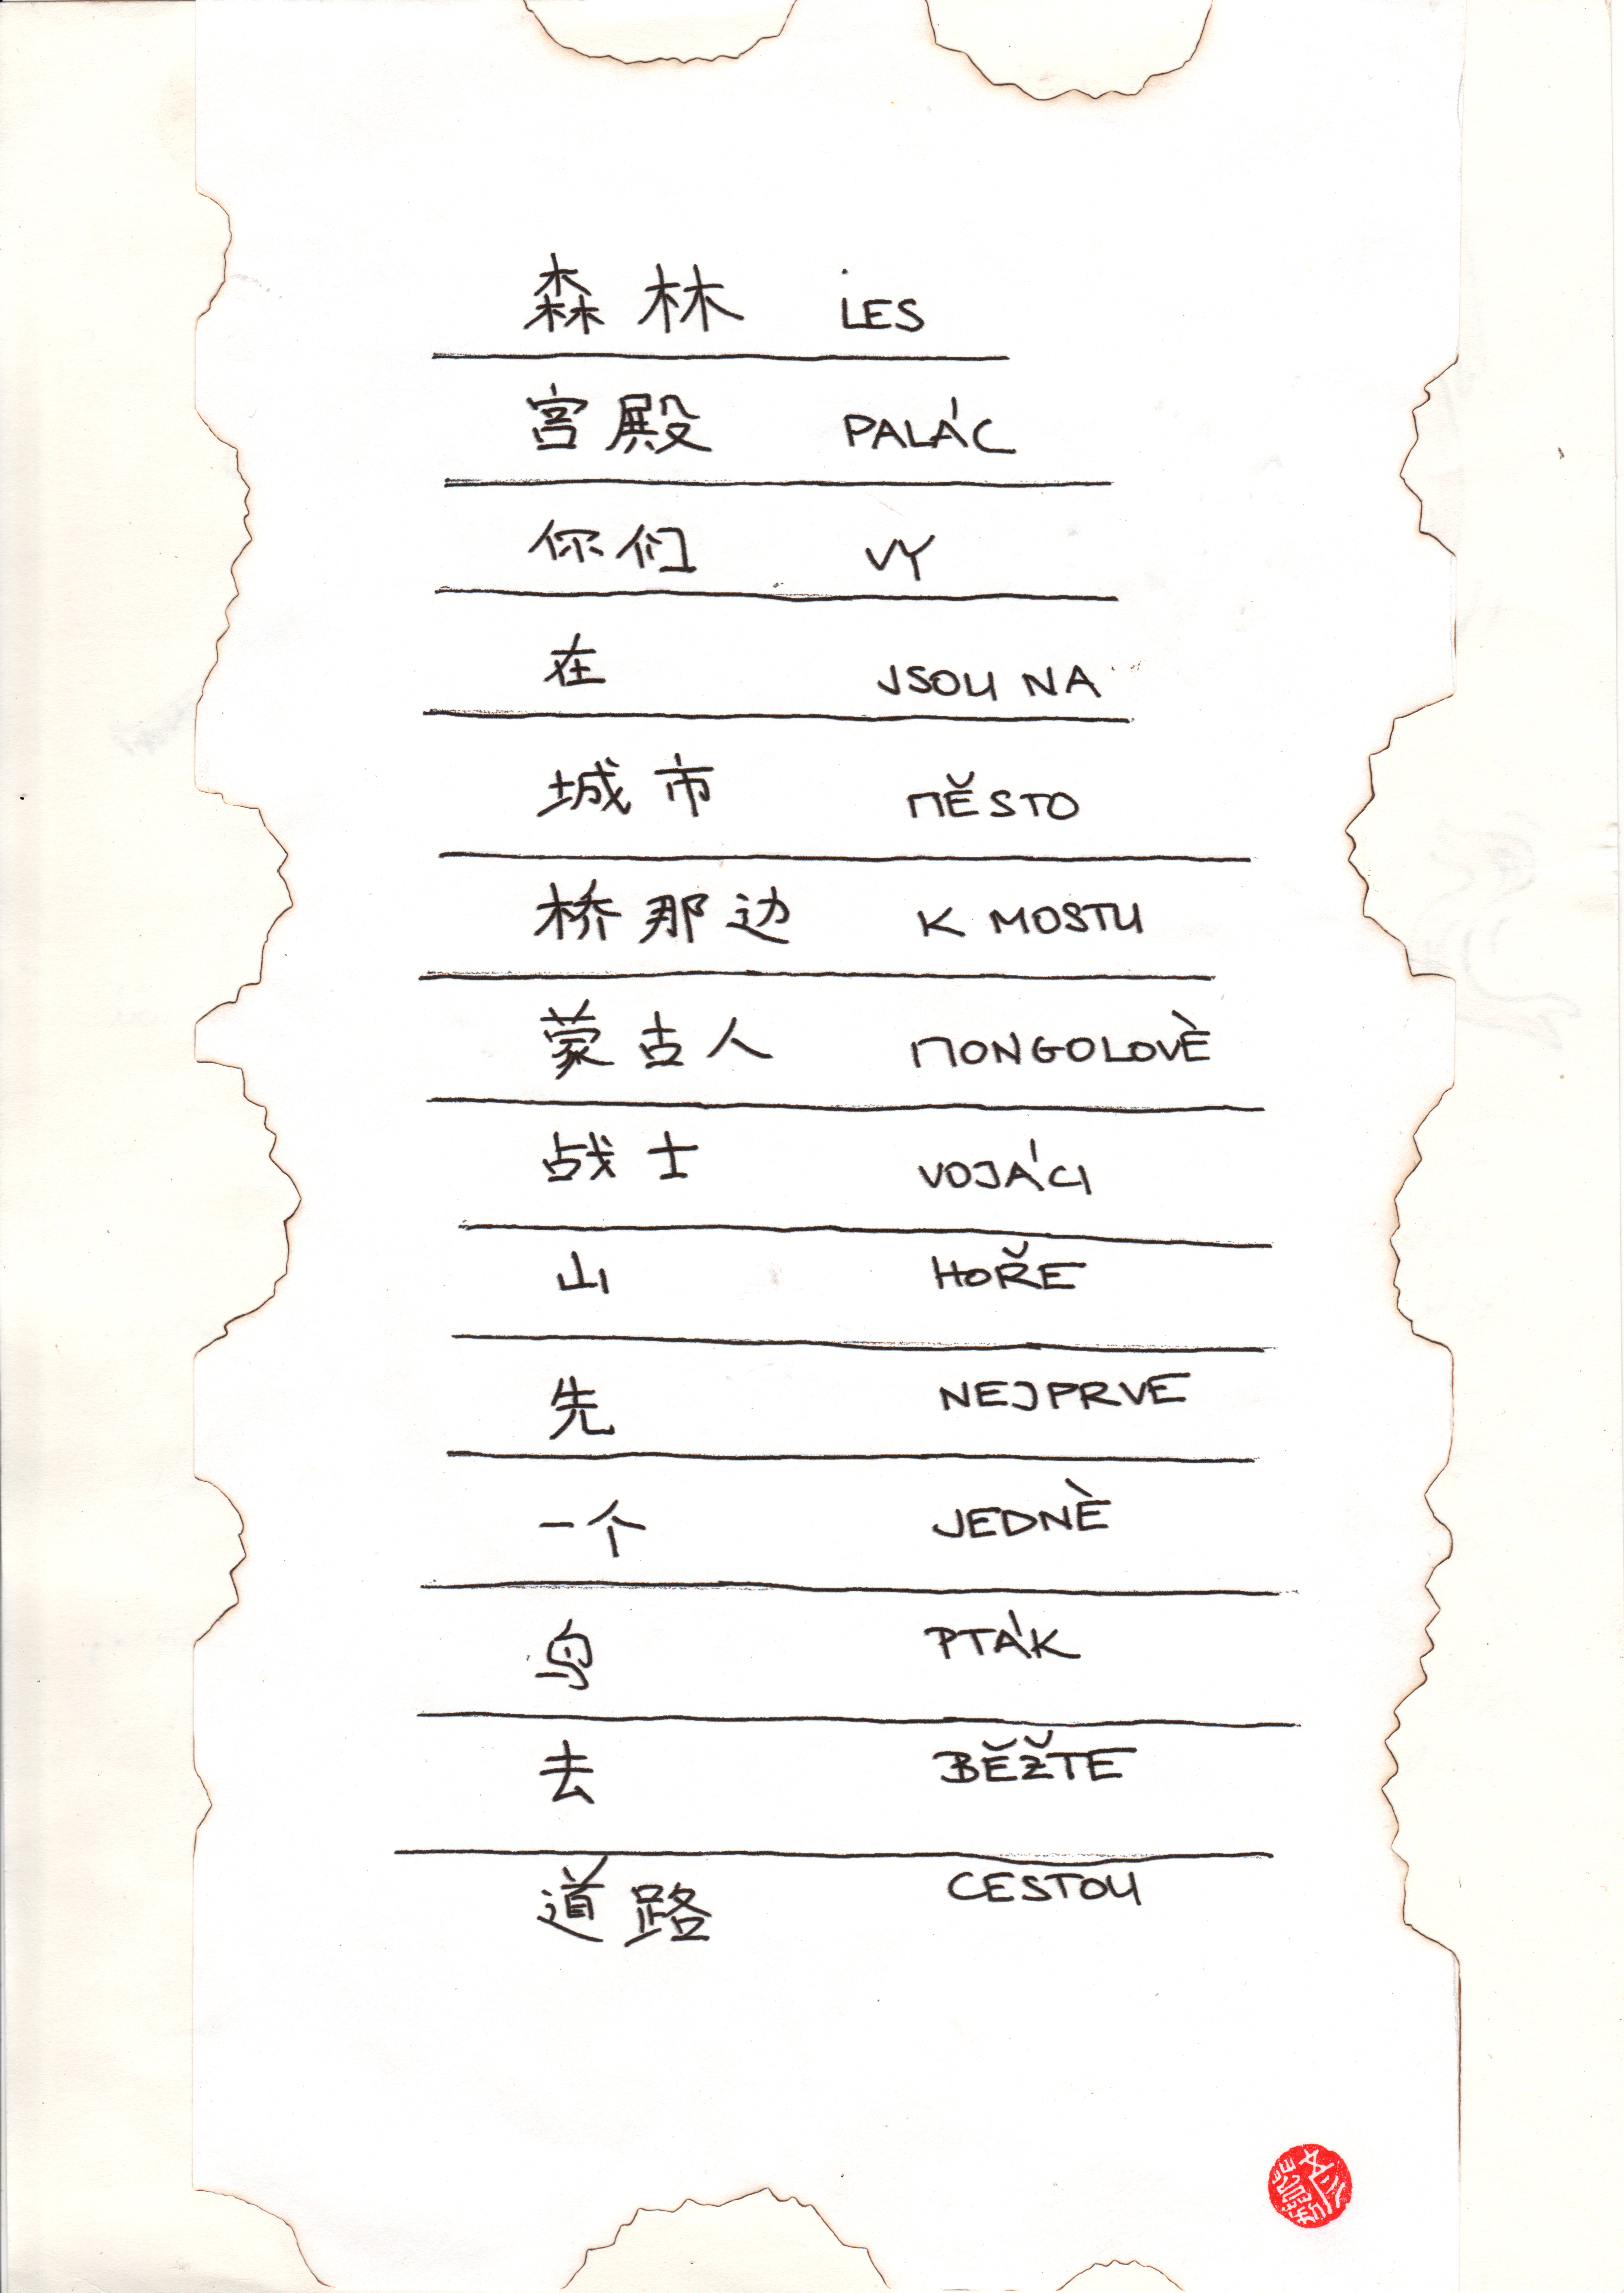 森林 LES
宫殿 PALÁC
你们 VY
在 JSOU NA
城市 MĚSTO
桥那边 K MOSTU
蒙古人 MONGOLOVÈ
战士 VOJÁCI
山 HOŘE
先 NEJPRVE
一个 JEDNÈ
鸟 PTÁK
去 BĚŽTE
道路 CESTOU